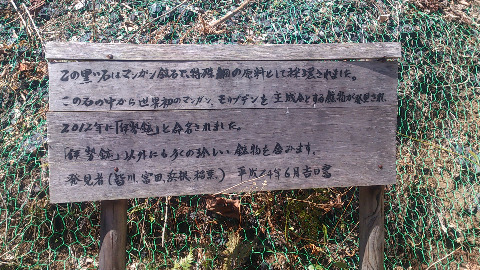 この黒い石はマンガン鉱石で、特殊鋼の原料として採選されました。
この石の中から世界初のマンガン、モリブデンを主成分とする鉱物が発見され、
2012年に「伊勢鉱」と命名されました。
「伊勢鉱」以外にも多くの珍しい鉱物を含みます。
発見者(皆川、冨田、 稲葉) 平成24年6月吉日